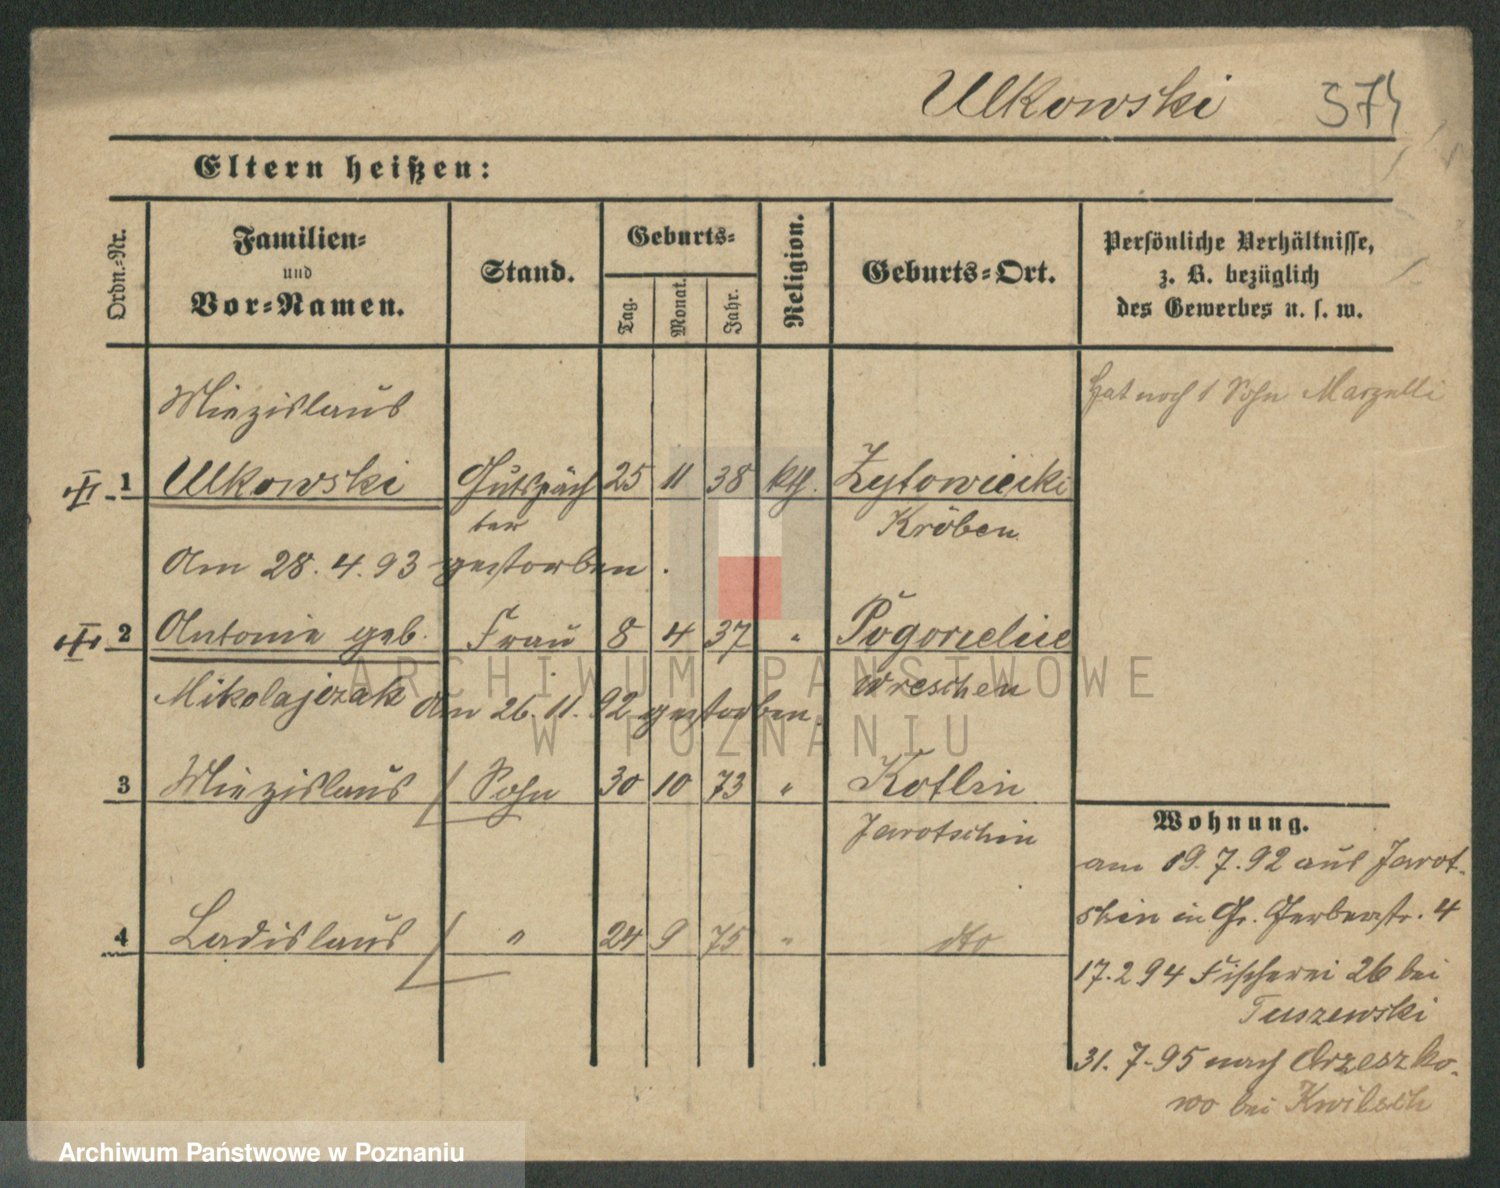 Ulkowski
Eltern heißen:
Ordn.-Nr.
Familien-
und
Vor-Namen.
Stand.
Geburts-
Tag.
Monat.
Jahr.
Religion.
Geburts-Ort.
Persönliche Verhältnisse,
z. B. bezüglich
des Gewerbes u. s. w.
Hat noch 1 Sohn Marzelli
Miezislaus
1 Ulkowski Gutspäch 25 11 38 kth. Zytowiecki
ter Kröben
Am 28. 4. 93 gestorben.
2 Antonie geb. Frau 8 4 37 " Pogorzelice
Mikolajczak Am 26. 11. 92 gestorben. Wreschen
3 Miezislaus Sohn 30 10 73 " Kotlin
Jarotschin
4 Ladislaus " 24 9 75 " dto
Wohnung.
am 19. 7. 92 aus Jarot-
schin in Gr. Gerberstr. 4
17. 2 94 Fischerei 26 bei
Tuszewski
31. 7. 95 nach Orzeszko-
wo bei Kwilsch
ARCHIWUM PAŃSTWOWE
W POZNANIU
Archiwum Państwowe w Poznaniu